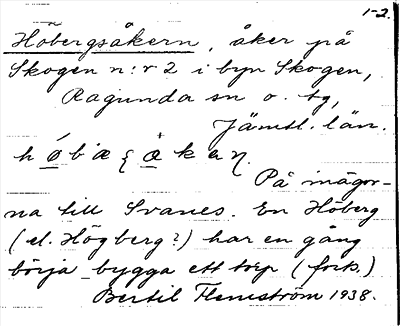 1-2.
Höbergsåkern, åker på
Skogen n:r 2 i byn Skogen,
Ragunda sn o. tg,
Jämtl. län.
På inägor-
na till Svanes. En Höberg
(el. Högberg?) har en gång
börja bygga ett torp (forts.)
Bertil Flemström 1938.